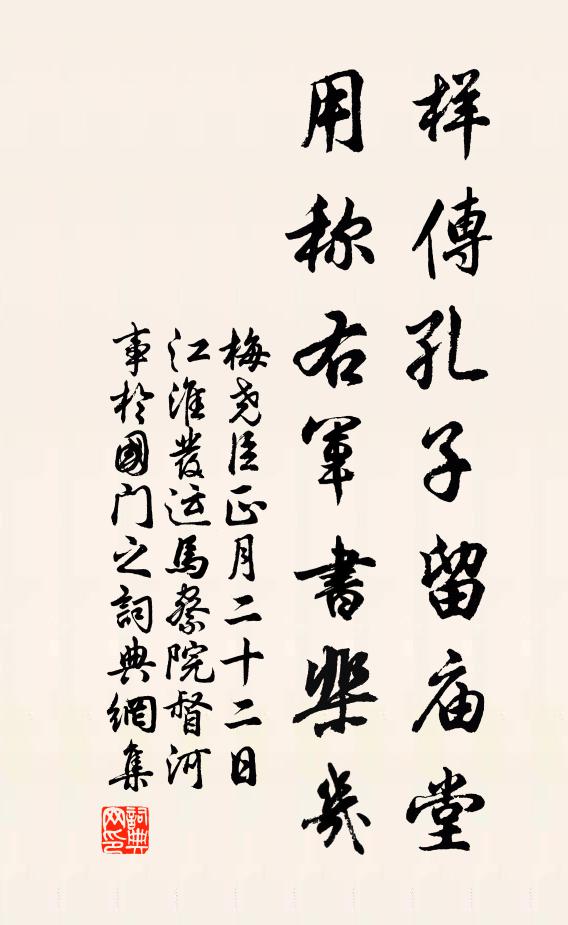 样傳孔子留庙堂
用称右軍書棐幾
梅尧臣正月二十二日
江淮發运馬察院督河
事於國門之詞典網集
詞典
网印